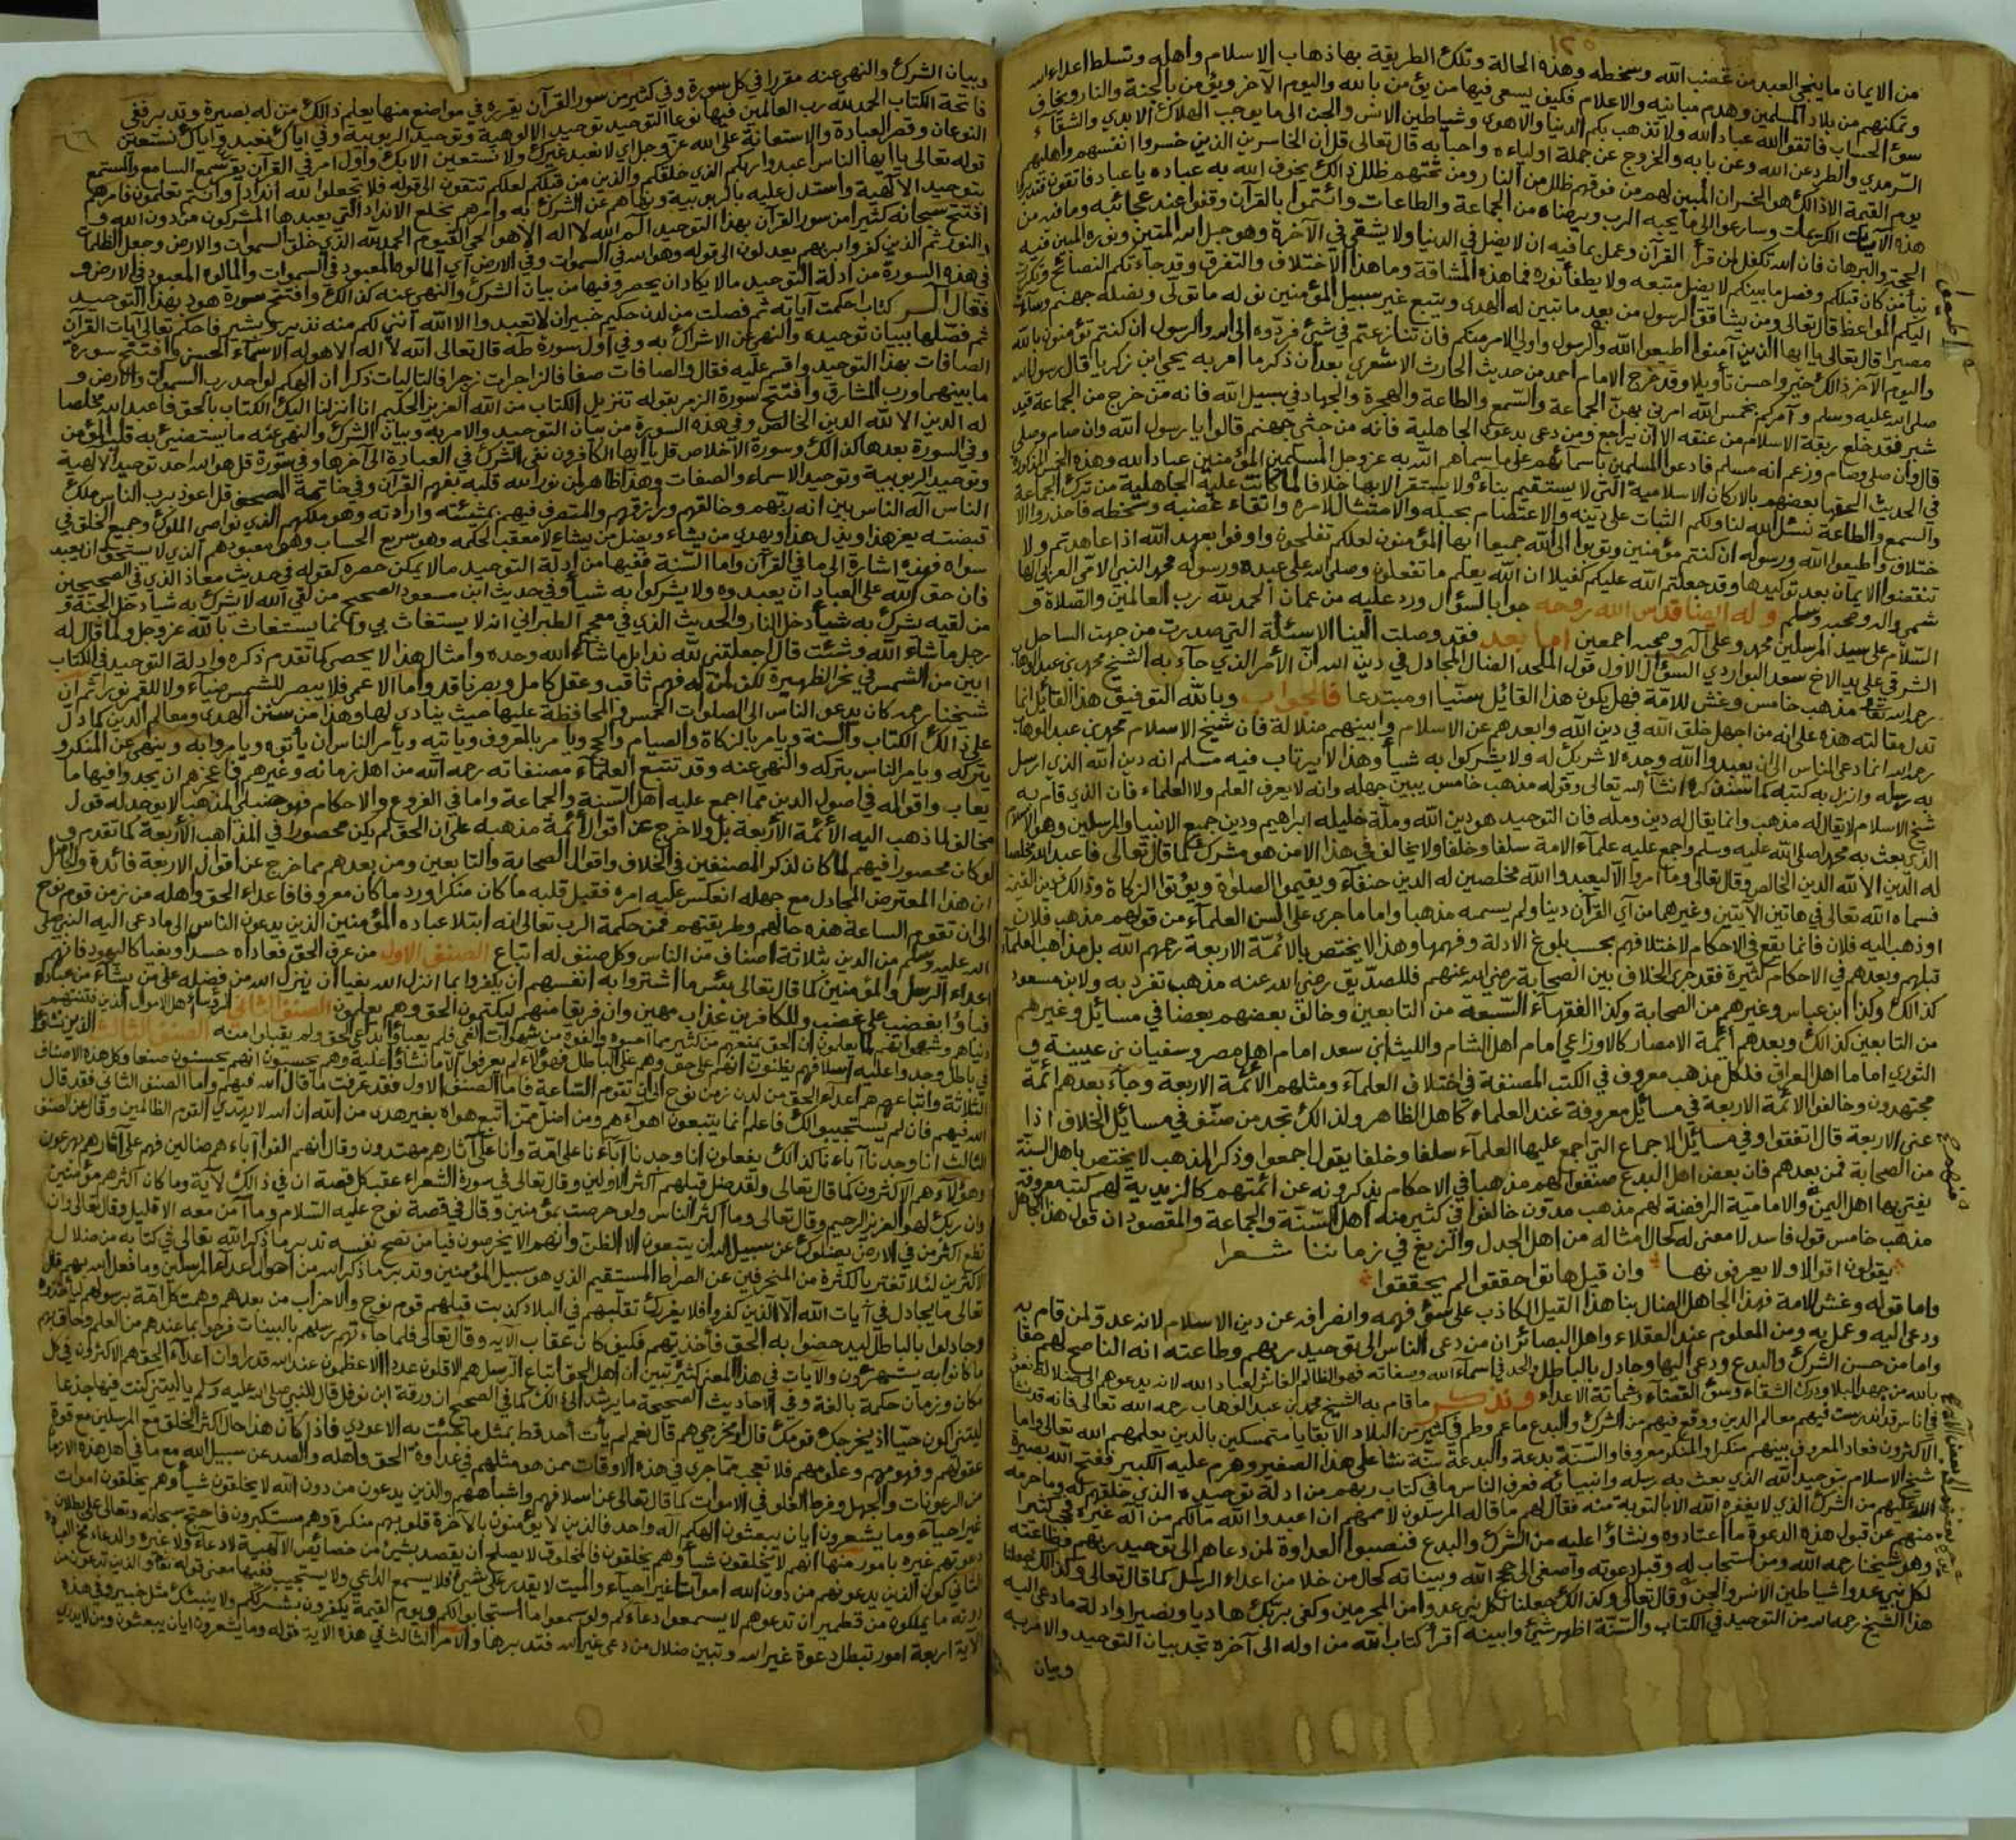 ١٢٥
من الايمان ما ينجي العبد من غضب الله وسخطه وهذه الحالة وتلك الطريقة بها ذهاب الاسلام واهله وتسلط اعداء الله
وتمكنهم من بلاد المسلمين وهدم مبانيه والاعلام فكيف يسعى فيها من يؤمن بالله واليوم الآخر ويؤمن بالجنة والنار ويخاف
سوء الحساب فاتقوا الله عباد الله ولا تذهب بكم الدنيا والاهوى وشياطين الانس والجن الى ما يوجب الهلاك الابدي والشقاء
السرمدي والطرد عن الله وعن بابه والخروج عن جملة اولياءه واحبابه قال تعالى قل ان الخاسرين الذين خسروا انفسهم واهليهم
يوم القيمة الا ذالك هو الخسران المبين لهم من فوقهم ظلل من النار ومن تحتهم ظلل ذالك يخوف الله به عباده يا عباد فاتقون
هذه الآيات الكريمات وسارعوا الى ما يحبه الرب ويرضاه من الجماعة والطاعات وائتموا بالقرآن وقفوا عند عجائبه وما فيه من
الحجة والبرهان فان الله تكفل لمن قرأ القرآن وعمل بما فيه ان لا يضل في الدنيا ولا يشقى في الآخرة وهو حبل الله المتين ونوره المبين فيه
نبأ من كان قبلكم وفصل ما بينكم لا يضل متبعه ولا يطفأ نوره فما هذه المشاقة وما هذا الاختلاف والتفرق وقد جاءتكم النصائح وتكررت
اليكم المواعظ قال تعالى ومن يشاقق الرسول من بعد ما تبين له الهدى ويتبع غير سبيل المؤمنين نوله ما تولى ونصله جهنم وساءت
مصيرا قال تعالى يا ايها الذين آمنوا اطيعوا الله والرسول واولي الامر منكم فان تنازعتم في شئ فردوه الى الله والرسول ان كنتم تؤمنون بالله
واليوم الآخر ذالك خير واحسن تأويلا وقد خرج الامام احمد من حديث الحارث الاشعري بعد ان ذكر ما امر به يحيى ابن زكريا قال رسول الله
صلى الله عليه وسلم وآمركم بخمس الله امرني بهن الجماعة والسمع والطاعة والهجرة والجهاد في سبيل الله فانه من خرج من الجماعة قيد
شبر فقد خلع ربقة الاسلام من عنقه الا ان يراجع ومن دعى بدعوى الجاهلية فانه من حثي جهنم قالوا يا رسول الله وان صام وصلى
قال وان صلى وصام وزعم انه مسلم فادعوا المسلمين باسمائهم على ما سماهم الله به عز وجل المسلمين المؤمنين عباد الله وهذه الخمس المذكورة
في الحديث الحقها بعضهم بالاركان الاسلامية التي لا يستقيم بناءه ولا يستقر الا بها خلافا لما كانت عليه الجاهلية من ترك الجماعة
والسمع والطاعة نسئل الله لنا ولكم الثبات على دينه والاعتصام بحبله والامتثال لامره واتقاء غضبه وسخطه فاحذروا الا
ختلاف واطيعوا الله ورسوله ان كنتم مؤمنين وتوبوا الى الله جميعا ايها المؤمنون لعلكم تفلحون واوفوا بعهد الله اذا عاهدتم ولا
تنقضوا الايمان بعد توكيدها وقد جعلتم الله عليكم كفيلا ان الله يعلم ما تفعلون وصلى الله على عبده ورسوله محمد النبي الامي العربي الها
شمي واله وصحبه وسلم وله ايضا قدس الله روحه جوابا لسؤال ورد عليه من عمان الحمد لله رب العالمين والصلاة و
السلام على سيد المرسلين محمد وعلى آله وصحبه اجمعين اما بعد فقد وصلت الينا الاسئلة التي صدرت من جهت الساحل
الشرقي على يد الاخ سعد البواردي السؤال الاول قول الملحد الضال المجادل في دين الله ان الامر الذي جاء به الشيخ محمد بن عبد الوهاب
رحمه الله تعالى مذهب خامس وغش للامة فهل يكون هذا القائل سنيا او مبتدعا فالجواب وبالله التوفيق هذا القائل انما
تدل مقالته هذه على انه من اجهل خلق الله في دين الله وابعدهم عن الاسلام وابينهم ضلالة فان شيخ الاسلام محمد بن عبد الوهاب
رحمه الله انما دعى الناس الى ان يعبدوا الله وحده لا شريك له ولا يشركوا به شيأ وهذا لا يرتاب فيه مسلم انه دين الله الذي ارسل
به رسله وانزل به كتبه كما سنذكره انشأ الله تعالى وقوله مذهب خامس يبين جهله وانه لا يعرف العلم ولا العلماء فان الذي قام به
شيخ الاسلام لا يقال له مذهب وانما يقال له دين وملة فان التوحيد هو دين الله وملة خليله ابراهيم ودين جميع الانبيا والمرسلين وهو الاسلام
الذي بعث به محمدا صلى الله عليه وسلم واجمع عليه علماء الامة سلفا وخلفا ولا يخالف في هذا الا من هو مشرك كما قال تعالى فاعبد الله مخلصا
له الدين الا لله الدين الخالص وقال تعالى وما امروا الا ليعبدوا الله مخلصين له الدين حنفاء ويقيموا الصلوة ويؤتوا الزكاة وذالك دين القيمة
فسماه الله تعالى في هاتين الآيتين وغيرهما من آي القرآن دينا ولم يسمه مذهبا واما ما جرى على السن العلماء من قولهم مذهب فلان
او ذهب اليه فلان فانما يقع في الاحكام لاختلافهم بحسب بلوغ الادلة وفهمها وهذا لا يختص بالائمة الاربعة رحمهم الله بل مذاهب العلماء
قبلهم وبعدهم في الاحكام كثيرة فقد جرى الخلاف بين الصحابة رضي الله عنهم فللصديق رضي الله عنه مذهب تفرد به ولابن مسعود
كذالك وكذا ابن عباس وغيرهم من الصحابة وكذا الفقهاء السبعة من التابعين وخالف بعضهم بعضا في مسائل وغيرهم
من التابعين كذالك وبعدهم ائمة الامصار كالاوزاعي امام اهل الشام والليث ابن سعد امام اهل مصر وسفيان بن عيينة و
الثوري اماما اهل العراق فلكل مذهب معروف في الكتب المصنفة في اختلاف العلماء ومثلهم الائمة الاربعة وجاء بعدهم ائمة
مجتهدون وخالفوا الائمة الاربعة في مسائل معروفة عند العلماء كاهل الظاهر ولذالك تجد من صنف في مسائل الخلاف اذا
عنى الاربعة قال اتفقوا وفي مسائل الاجماع التي اجمع عليها العلماء سلفا وخلفا يقول اجمعوا وذكر المذهب لا يختص باهل السنة
من الصحابة فمن بعدهم فان بعض اهل البدع صنفوا لهم مذهبا في الاحكام يذكرونه عن ائمتهم كالزيدية لهم كتب معروفة
يفتي بها اهل اليمن والامامية الرافضة لهم مذهب مدون خالفوا في كثير منه اهل السنة والجماعة والمقصود ان قول هذا الجاهل
مذهب خامس قول فاسد لا معنى له كحال امثاله من اهل الجدل والزيغ في زماننا شعرا
يقولون اقوالا ولا يعرفونها وان قيل هاتوا حققوا لم يحققوا
واما قوله وغش للامة فهذا الجاهل الضال بنا هذا القيل الكاذب على سوء فهمه وانصرافه عن دين الاسلام لانه عدو لمن قام به
ودعى اليه وعمل به ومن المعلوم عند العقلاء واهل البصائر ان من دعى الناس الى توحيد ربهم وطاعته انه الناصح لهم حقا
واما من حسن الشرك والبدع ودعى اليها وجادل بالباطل والحد في اسماء الله وصفاته فهو الظالم الغاش لعباد الله لانه يدعوهم الى ضلالة نعوذ
بالله من جهد البلاء ودرك الشقاء وسوء القضاء وشماتة الاعداء ونذكر ما قام به الشيخ محمد بن عبد الوهاب رحمه الله تعالى فانه قد نشأ
في اناس قد اندرست فيهم معالم الدين ووقع فيهم من الشرك والبدع ما عم وطم في كثير من البلاد الا بقايا متمسكين بالدين يعلمهم الله تعالى واما
الاكثرون فعاد المعروف بينهم منكرا والمنكر معروفا والسنة بدعة والبدعة سنة نشأ على هذا الصغير وهرم عليه الكبير ففتح الله بصيرة
شيخ الاسلام بتوحيد الله الذي بعث به رسله وانبيائه فعرف الناس ما في كتاب ربهم من ادلة توحيده الذي خلقهم له وما حرمه
الله عليهم من الشرك الذي لا يغفره الله الا بالتوبة منه فقال لهم ما قاله المرسلون لاممهم ان اعبدوا الله ما لكم من اله غيره فحجب كثيرا
منهم عن قبول هذه الدعوة ما اعتادوه ونشاؤا عليه من الشرك والبدع فنصبوا العداوة لمن دعاهم الى توحيد ربهم وطاعته
وهو شيخنا رحمه الله ومن استجاب له وقبل دعوته واصغى الى حجج الله وبيناته كحال من خلا من اعداء الرسل كما قال تعالى وكذالك جعلنا
لكل نبي عدوا شياطين الانس والجن وقال تعالى وكذالك جعلنا لكل نبي عدوا من المجرمين وكفى بربك هاديا ونصيرا وادلة ما دعى اليه
هذا الشيخ رحمه الله من التوحيد في الكتاب والسنة اظهر شئ وابينه اقرأ كتاب الله من اوله الى آخره تجد بيان التوحيد والامر به
وبيان
وبيان الشرك والنهي عنه مقررا في كل سورة وفي كثير من سور القرآن يقرره في مواضع منها يعلم ذالك من له بصيرة وتدبر ففي
فاتحة الكتاب الحمد لله رب العالمين فيها نوعا التوحيد توحيد الالوهية وتوحيد الربوبية وفي اياك نعبد واياك نستعين
النوعان وقصر العبادة والاستعانة على الله عز وجل اي لا نعبد غيرك ولا نستعين الا بك واول امر في القرآن يقرع سمع السامع والمستمع
قوله تعالى يا ايها الناس اعبدوا ربكم الذي خلقكم والذين من قبلكم لعلكم تتقون الى قوله فلا تجعلوا لله اندادا وانتم تعلمون فامرهم
بتوحيد الالهية واستدل عليه بالربوبية ونهاهم عن الشرك به وامرهم بخلع الانداد التي يعبدها المشركون من دون الله و
افتتح سبحانه كثيرا من سور القرآن بهذا التوحيد الم الله لا اله الا هو الحي القيوم الحمد لله الذي خلق السموات والارض وجعل الظلمات
والنور ثم الذين كفروا بربهم يعدلون الى قوله وهو الله في السموات وفي الارض اي المالوه المعبود في السموات والمالوه المعبود في الارض و
في هذه السورة من ادلة التوحيد ما لا يكاد ان يحصر وفيها من بيان الشرك والنهي عنه كذالك وافتتح سورة هود بهذا التوحيد
فقال الر كتاب احكمت آياته ثم فصلت من لدن حكيم خبير ان لا تعبدوا الا الله انني لكم منه نذير وبشير فاحكم تعالى آيات القرآن
ثم فصلها ببيان توحيده والنهي عن الاشراك به وفي اول سورة طه قال تعالى الله لا اله الا هو له الاسماء الحسنى وافتتح سورة
الصافات بهذا التوحيد واقسم عليه فقال والصافات صفا فالزاجرات زجرا فالتاليات ذكرا ان الهكم لواحد رب السموات والارض و
ما بينهما ورب المشارق وافتتح سورة الزمر بقوله تنزيل الكتاب من الله العزيز الحكيم انا انزلنا اليك الكتاب بالحق فاعبد الله مخلصا
له الدين الا لله الدين الخالص وفي هذه السورة من بيان التوحيد والامر به وبيان الشرك والنهي عنه ما يستضيئ به قلب المؤمن
وفي السورة بعدها كذالك وسورة الاخلاص قل يا ايها الكافرون نفي الشرك في العبادة الى آخرها وفي سورة قل هو الله احد توحيد الالهية
وتوحيد الربوبية وتوحيد الاسماء والصفات وهذا ظاهر لمن نور الله قلبه بفهم القرآن وفي خاتمة المصحف قل اعوذ برب الناس ملك
الناس اله الناس بين انه ربهم وخالقهم ورازقهم والمتصرف فيهم بمشيئته وارادته وهو ملكهم الذي نواصي الملوك وجميع الخلق في
قبضته يعز هذا ويذل هذا ويهدي من يشاء ويضل من يشاء لا معقب لحكمه وهو سريع الحساب وهو معبودهم الذي لا يستحق ان يعبد
سواه فهذه اشارة الى ما في القرآن واما السنة ففيها من ادلة التوحيد ما لا يمكن حصره كقوله في حديث معاذ الذي في الصحيحين
فان حق الله على العباد ان يعبدوه ولا يشركوا به شيأ وفي حديث ابن مسعود الصحيح من لقي الله لا يشرك به شيا دخل الجنة و
من لقيه يشرك به شيأ دخل النار والحديث الذي في معجم الطبراني انه لا يستغاث بي وانما يستغاث بالله عز وجل ولما قال له
رجل ما شاء الله وشئت قال اجعلتني لله ندا بل ما شاء الله وحده وامثال هذا لا يحصى كما تقدم ذكره وادلة التوحيد في الكتاب
ابين من الشمس في نحر الظهيرة لكن لمن له فهم ثاقب وعقل كامل وبصر ناقد واما الاعمى فلا يبصر للشمس ضياء ولا للقمر نورا ثم ان
شيخنا رحمه كان يدعو الناس الى الصلوات الخمس والمحافظة عليها حيث ينادي لها وهذا من سنن الهدى ومعالم الدين كما دل
على ذالك الكتاب والسنة ويأمر بالزكاة والصيام والحج ويأمر بالمعروف ويأتيه ويأمر الناس ان يأتوه ويأمروا به وينهى عن المنكر و
يتركه ويأمر الناس بتركه والنهي عنه وقد تتبع العلماء مصنفاته رحمه الله من اهل زمانه وغيرهم فاعجزهم ان يجدوا فيها ما
يعاب واقواله في اصول الدين مما اجمع عليه اهل السنة والجماعة واما في الفروع والاحكام فهو حنبلي المذهب لا يوجد له قول
مخالف لما ذهب اليه الائمة الاربعة بل ولا خرج عن اقوال ائمة مذهبه على ان الحق لم يكن محصورا في المذاهب الاربعة كما تقدم و
لو كان محصورا فيهم لما كان لذكر المصنفين في الخلاف واقوال الصحابة والتابعين ومن بعدهم مما خرج عن اقوال الاربعة فائدة والحاصل
ان هذا المعترض المجادل مع جهله انعكس عليه امره فقبل قلبه ما كان منكرا ورد ما كان معروفا فاعداء الحق واهله من زمن قوم نوح
الى ان تقوم الساعة هذه حالهم وطريقتهم فمن حكمة الرب تعالى انه ابتلا عباده المؤمنين الذين يدعون الناس الى ما دعى اليه النبي صلى
الله عليه وسلم من الدين بثلاثة اصناف من الناس وكل صنف له اتباع الصنف الاول من عرف الحق فعاداه حسدا وبغيا كاليهود فانهم
اعداء الرسل والمؤمنين كما قال تعالى بئسما اشتروا به انفسهم ان يكفروا بما انزل الله بغيا ان ينزل الله من فضله على من يشاء من عباده
فباؤا بغضب على غضب وللكافرين عذاب مهين وان فريقا منهم ليكتمون الحق وهم يعلمون الصنف الثاني الرؤساء اهل الاموال الذين فتنتهم
دنياهم وشهواتهم لما يعلمون ان الحق يمنعهم من كثير مما احبوه والفوه من شهوات الغي فلم يعبأوا بداعي الحق ولم يقبلوا منه الصنف الثالث الذين نشاؤا
في باطل وجدوا عليه اسلافهم يظنون انهم على حق وهم على الباطل فهؤلاء لم يعرفوا الا ما نشاؤا عليه وهم يحسبون انهم يحسنون صنعا وكل هذه الاصناف
الثلاثة واتباعهم هم اعداء الحق من لدن زمن نوح الى ان تقوم الساعة فاما الصنف الاول فقد عرفت ما قال الله فيهم واما الصنف الثاني فقد قال
الله فيهم فان لم يستجيبوا لك فاعلم انما يتبعون اهواءهم ومن اضل ممن اتبع هواه بغير هدى من الله ان الله لا يهدي القوم الظالمين وقال عن الصنف
الثالث انا وجدنا آباءنا كذالك يفعلون انا وجدنا آباءنا على امة وانا على آثارهم مهتدون وقال انهم الفوا آباءهم ضالين فهم على آثارهم يهرعون
وهؤلاء هم الاكثرون كما قال تعالى ولقد ضل قبلهم اكثر الاولين وقال تعالى في سورة الشعراء عقب كل قصة ان في ذالك لآية وما كان اكثرهم مؤمنين
وان ربك لهو العزيز الرحيم وقال تعالى وما اكثر الناس ولو حرصت بمؤمنين وقال في قصة نوح عليه السلام وما آمن معه الا قليل وقال تعالى وان
تطع اكثر من في الارض يضلوك عن سبيل الله ان يتبعون الا الظن وانهم الا يخرصون فيا من نصح نفسه تدبر ما ذكر الله تعالى في كتابه من ضلال
الاكثرين لئلا تغتر بالكثرة من المنحرفين عن الصراط المستقيم الذي هو سبيل المؤمنين وتدبر ما ذكر الله من احوال اعداء المرسلين وما فعل الله بهم قال
تعالى ما يجادل في آيات الله الا الذين كفروا فلا يغررك تقلبهم في البلاد كذبت قبلهم قوم نوح والاحزاب من بعدهم وهمت كل امة برسولهم ليأخذوه
وجادلوا بالباطل ليدحضوا به الحق فأخذتهم فكيف كان عقاب الآيه وقال تعالى فلما جاءتهم رسلهم بالبينات فرحوا بما عندهم من العلم وحاق بهم
ما كانوا به يستهزؤن والآيات في هذا المعنى كثيرة تبين ان اهل الحق اتباع الرسل هم الاقلون عددا الاعظمون عند الله قدرا وان اعداء الحق هم الاكثرون في كل
مكان وزمان حكمة بالغة وفي الاحاديث الصحيحة ما يرشد الى ذالك كما في الصحيح ان ورقة ابن نوفل قال للنبي صلى الله عليه وسلم يا ليتني كنت فيها جذعا
ليتني اكون حيا اذ يخرجك قومك قال او مخرجي هم قال نعم لم يأت أحد قط بمثل ما جئت به الا عودي فاذا كان هذا حال اكثر الخلق مع المرسلين مع قوة
عقولهم وفهومهم وعلومهم فلا تعجب مما جرى في هذه الاوقات ممن هو مثلهم في عداوة الحق واهله والصد عن سبيل الله مع ما في اهل هذه الازمان
من الرعونات والجهل وفرط الغلو في الاموات كما قال تعالى عن اسلافهم واشباههم والذين يدعون من دون الله لا يخلقون شيأ وهم يخلقون اموات
غير احياء وما يشعرون ايان يبعثون الهكم اله واحد فالذين لا يؤمنون بالآخرة قلوبهم منكرة وهم مستكبرون فاحتج سبحانه وتعالى على بطلان
دعوتهم غيره بامور منها انهم لا يخلقون شيأ وهم يخلقون فالمخلوق لا يصلح ان يقصد بشئ من خصائص الالهية لا دعاء ولا غيره والدعاء مخ العبادة
الثاني كون الذين يدعونهم من دون الله امواتا غير احياء والميت لا يقدر على شئ فلا يسمع الداعي ولا يستجيب ففيها معنى قوله تعالى والذين تدعون من
دونه ما يملكون من قطمير ان تدعوهم لا يسمعوا دعاءكم ولو سمعوا ما استجابوا لكم ويوم القيمة يكفرون بشرككم ولا ينبئك مثل خبير وفي هذه
الآية اربعة امور تبطل دعوة غير الله وتبين ضلال من دعى غير الله فتدبرها والامر الثالث في هذه الآية قوله وما يشعرون ايان يبعثون ومن لا يدري